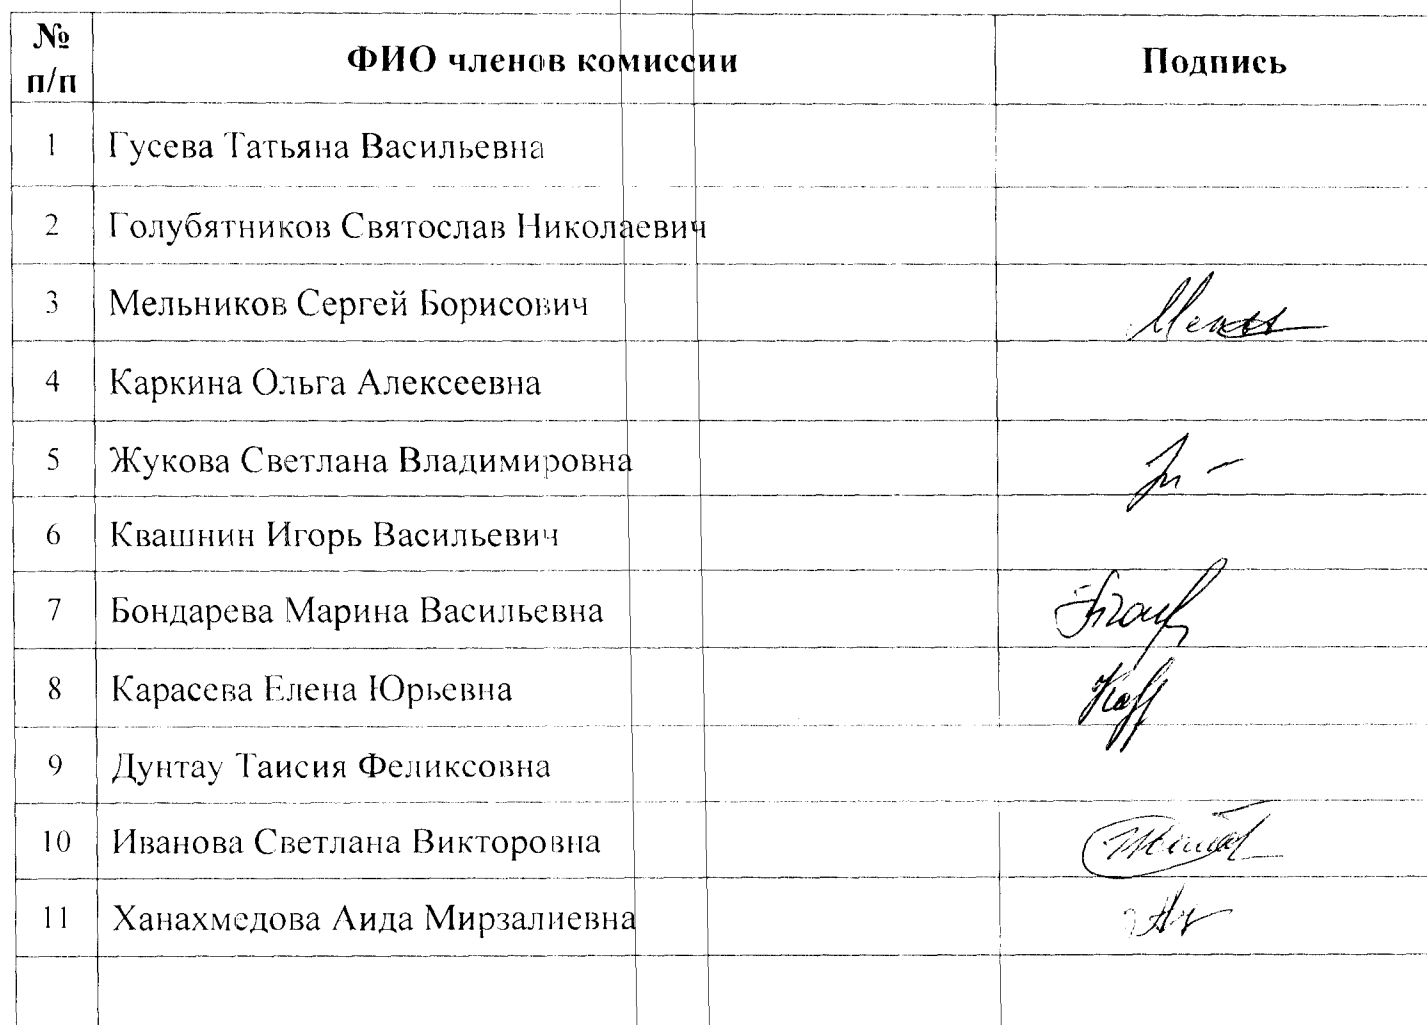 № п/п ФИО членов комиссии Подпись
1 Гусева Татьяна Васильевна
2 Голубятников Святослав Николаевич
3 Мельников Сергей Борисович
4 Каркина Ольга Алексеевна
5 Жукова Светлана Владимировна
6 Квашнин Игорь Васильевич
7 Бондарева Марина Васильевна
8 Карасева Елена Юрьевна
9 Дунтау Таисия Феликсовна
10 Иванова Светлана Викторовна
11 Ханахмедова Аида Мирзалиевна